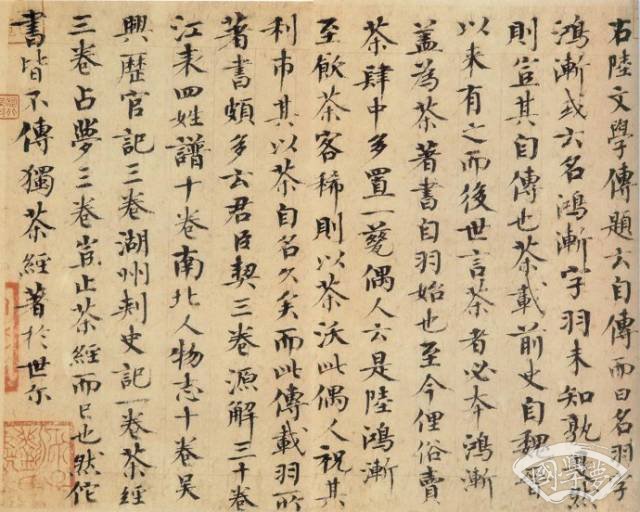 右陸文學傳題云自傳而曰名羽字
鴻漸或云名鴻漸字羽未知孰是然
則豈其自傳也茶載前史自魏晉
以來有之而後世言茶者必本鴻漸
蓋為茶著書自羽始也至今俚俗賣
茶肆中多置一甆偶人云是陸鴻漸
至飲茶客稀則以茶沃此偶人祝其
利市其以茶自名久矣而此傳載羽所
著書頗多云君臣契三卷源解三十卷
江表四姓譜十卷南北人物志十卷吳
興歷官記三卷湖州刺史記一卷茶經
三卷占夢三卷豈止茶經而已也然佗
書皆不傳獨茶經著於世尔
國學夢